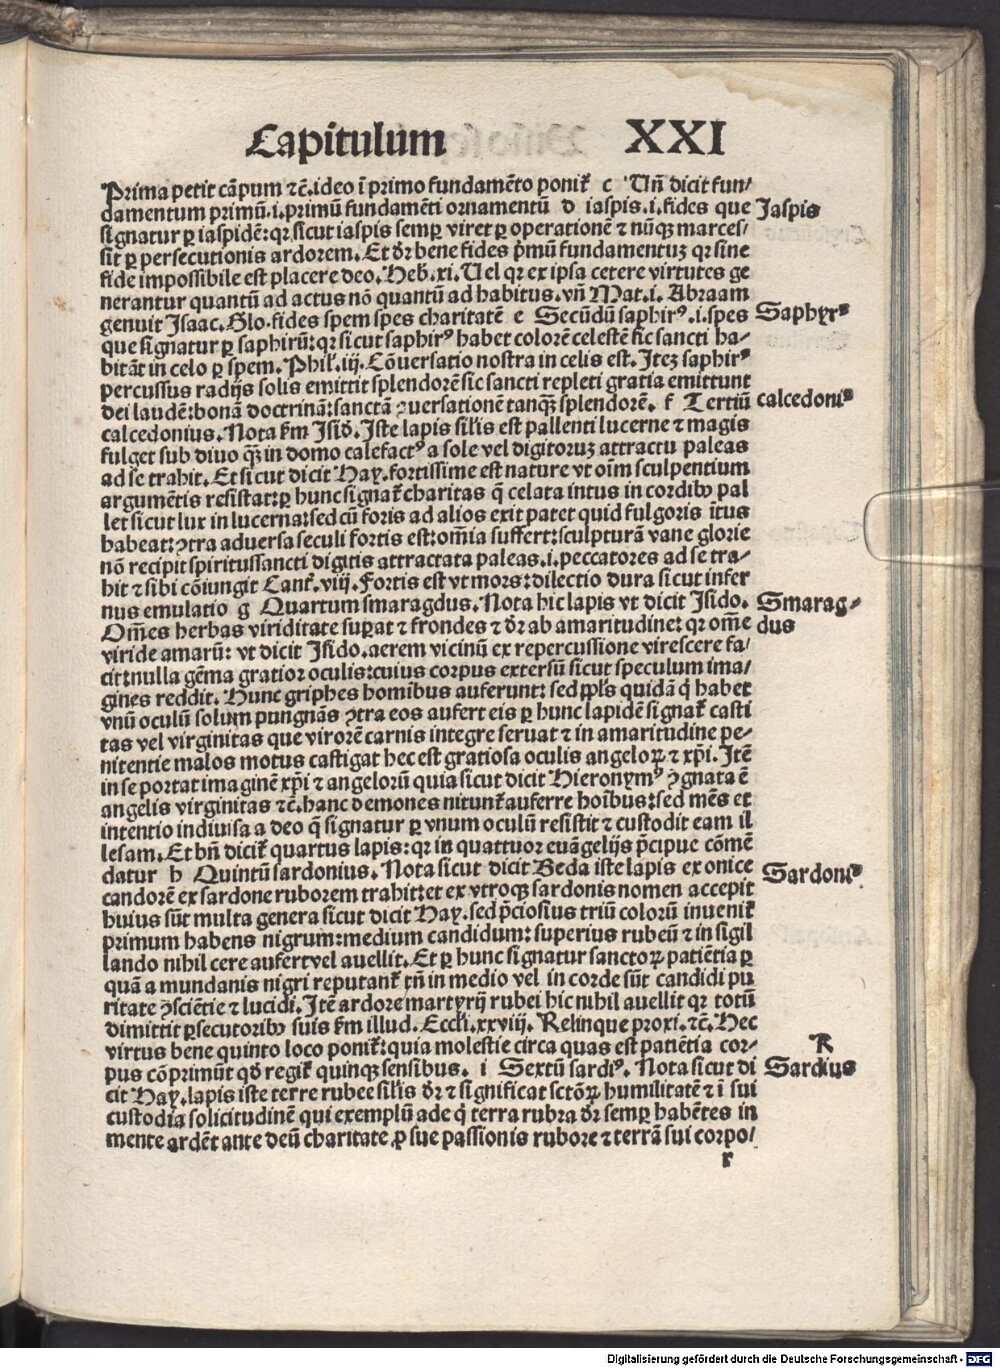 Capitulum XXI
Prima petit cāpum ⁊c̄. ideo ī primo fundamēto poniť c Uñ dicit fun/
damentum primū. i. primū fundamēti ornamentū d iaspis. i. fides que Jaspis
signatur ꝑ iaspidē: qꝛ sicut iaspis semꝑ viret ꝑ operationē ⁊ nūqꝫ marces/
sit ꝑ persecutionis ardorem. Et dr̄ bene fides p̄mū fundamentuꝫ qꝛ sine
fide impossibile est placere deo. Heb. xi. Uel qꝛ ex ipsa cetere virtutes ge
nerantur quantū ad actus nō quantū ad habitus. vñ Mat. i. Abraam
genuit Isaac. Glo. fides spem spes charitatē e Secūdū saphirꝰ. i. spes Saphyrꝰ
que signatur ꝑ saphirū: qꝛ sicut saphirꝰ habet colorē celestē sic sancti ha/
bitāt in celo ꝑ spem. Phil. iij. Cōuersatio nostra in celis est. Iteꝫ saphirꝰ
percussus radijs solis emittit splendorē sic sancti repleti gratia emittunt
dei laudē: bonā doctrinā: sanctā ꝯuersationē tanqꝫ splendorē. f Tertiū calcedoniꝰ
calcedonius. Nota ẜm Isid̄. Iste lapis sil̄is est pallenti lucerne ⁊ magis
fulget sub diuo qꝫ in domo calefactꝰ a sole vel digitoruꝫ attractu paleas
ad se trahit. Et sicut dicit Hay. fortissime est nature vt oīm sculpentium
argumētis resistat: ꝑ hunc signať charitas q̄ celata intus in cordibꝰ pal
let sicut lux in lucerna: sed cū foris ad alios exit patet quid fulgoris ītus
habeat: ꝯtra aduersa seculi fortis est: om̄ia suffert: sculpturā vane glorie
nō recipit spiritussancti digitis attractata paleas. i. peccatores ad se tra/
hit ⁊ sibi cōiungit Canť. viij. Fortis est vt mors: dilectio dura sicut infer
nus emulatio g Quartum smaragdus. Nota hic lapis vt dicit Isido. Smarag/
Om̄es herbas viriditate suꝑat ⁊ frondes ⁊ dr̄ ab amaritudine: qꝛ om̄e dus
viride amarū: vt dicit Isido. aerem vicinū ex repercussione virescere fa/
cit: nulla gēma gratior oculis: cuius corpus extersū sicut speculum ima/
gines reddit. Hunc griphes homībus auferunt: sed ppl̄s quidā q̇ habet
vnū oculū solum pungnās ꝯtra eos aufert eis ꝑ hunc lapidē signať casti
tas vel virginitas que virorē carnis integre seruat ⁊ in amaritudine pe/
nitentie malos motus castigat hec est gratiosa oculis angeloꝝ ⁊ xp̄i. Itē
in se portat imaginē xp̄i ⁊ angelorū quia sicut dicit Hieronymꝰ ꝯgnata ē
angelis virginitas ⁊c̄. hanc demones nitunť auferre hoībus: sed mēs et
intentio indiuisa a deo q̄ signatur ꝑ vnum oculū resistit ⁊ custodit eam il
lesam. Et bn̄ diciť quartus lapis: qꝛ in quattuor euāgelijs p̄cipue cōmē
datur h Quintū sardonius. Nota sicut dicit Beda iste lapis ex onice Sardoniꝰ
candorē ex sardone ruborem trahit: et ex vtroqꝫ sardonis nomen accepit
huius sūt multa genera sicut dicit Hay. sed p̄ciosius triū colorū inueniť
primum habens nigrum: medium candidum: superius rubeū ⁊ in sigil
lando nihil cere aufert vel auellit. Et ꝑ hunc signatur sanctoꝝ patiētia ꝑ
quā a mundanis nigri reputanť tn̄ in medio vel in corde sūt candidi pu
ritate ꝯsciētie ⁊ lucidi. Itē ardore martyrij rubei hic nihil auellit qꝛ totū
dimittit ꝑsecutoribꝰ suis ẜm illud. Eccli. xxviij. Relinque proxi. ⁊c̄. Hec
virtus bene quinto loco poniť: quia molestie circa quas est patiētia cor/ R
pus cōprimūt qd̄ regiť quinqꝫ sensibus. i Sextū sardiꝰ. Nota sicut di Sardius
cit Hay. lapis iste terre rubee sil̄is dr̄ ⁊ significat sctōꝝ humilitatē ⁊ ī sui
custodia solicitudinē qui exemplū ade q̇ terra rubra dr̄ semꝑ habētes in
mente ardēt ante deū charitate ꝓ sue passionis rubore ⁊ terrā sui corpo/
r
Digitalisierung gefördert durch die Deutsche Forschungsgemeinschaft - DFG